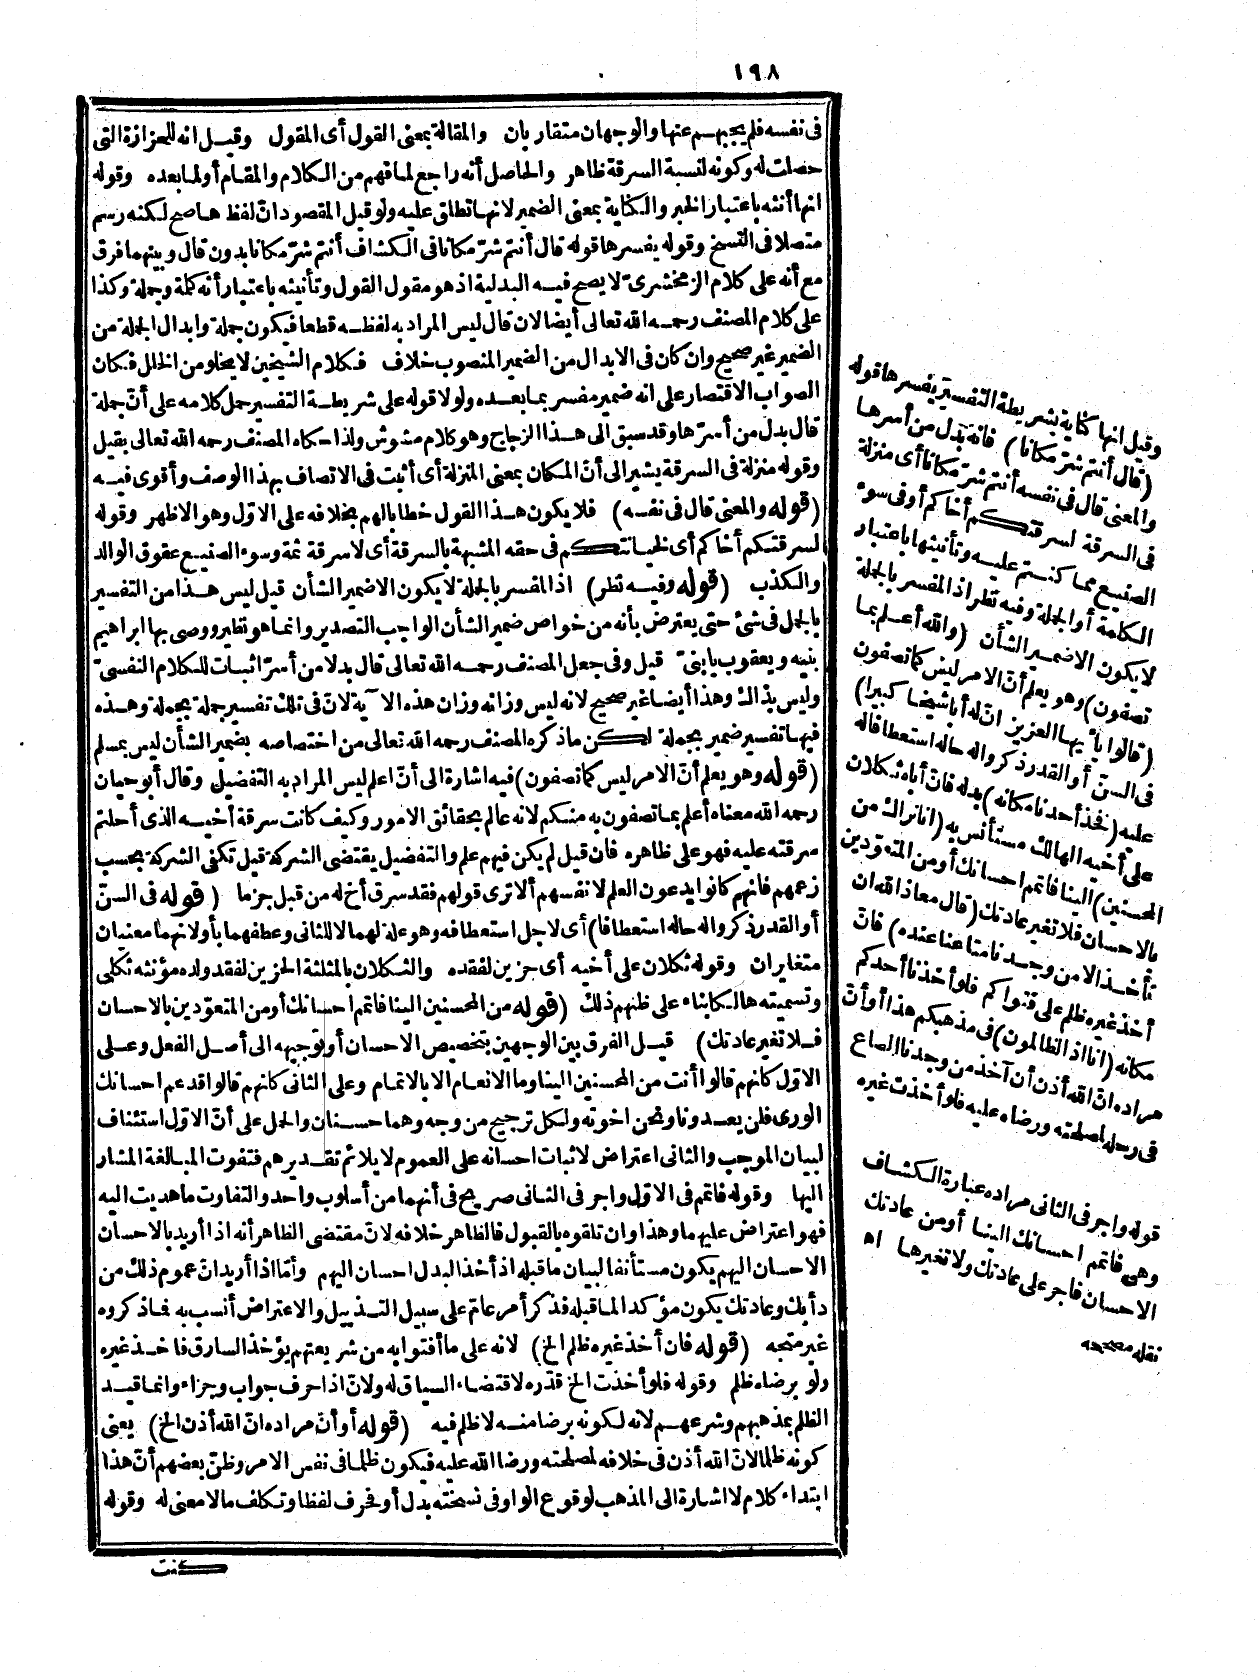 ١٩٨
فى نفسه فلم يجبهم عنها والوجهان متقاربان والمقالة بمعنى القول أى المقول وقيل انه للحزازة التى
حصلت له وكونه لنسبة السرقة ظاهر والحاصل أنه راجع لما فهم من الكلام والمقام أولما بعده وقوله
انها أنثه باعتبار الخبر والكناية بمعنى الضمير لانها تطلق عليه ولو قيل المقصود انّ لفظ ها صح لكنه رسم
متصلا فى النسخ وقوله يفسرها قوله قال أنتم شرّ مكانا فى الكشاف أنتم شرّ مكانا بدون قال وبينهما فرق
مع أنه على كلام الزمخشرىّ لا يصح فيه البدلية اذ هو مقول القول وتأنيثه باعتبار أنه كلة وجملة وكذا
على كلام المصنف رحمه الله تعالى أيضا لان قال ليس المراد به لفظه قطعا فيكون جملة وابدال الجملة من
الضمير غير صحيح وان كان فى الابدال من الضمير المنصوب خلاف فكلام الشيخين لا يخلو من الخلل فكان
الصواب الاقتصار على انه ضمير مفسر بما بعده ولولا قوله على شريطة التفسير حمل كلامه على أنّ جملة
قال بدل من أسرّها وقد سبق الى هذا الزجاج وهو كلام مشوش ولذا حكاه المصنف رحمه الله تعالى بقيل
وقوله منزلة فى السرقة يشير الى أنّ المكان بمعنى المنزلة أى أثبت فى الاتصاف بهذا الوصف وأقوى فيه
(قوله والمعنى قال فى نفسه) فلا يكون هذا القول خطابا لهم بخلافه على الاوّل وهو الاظهر وقوله
لسرقتكم أخاكم أى لخيانتكم فى حقه المشبهة بالسرقة أى لا سرقة ثمة وسوء الصنيع عقوق الوالد
والكذب (قوله وفيه نظر) اذ المفسر بالجملة لا يكون الا ضمير الشأن قيل ليس هذا من التفسير
بالجمل فى شئ حتى يعترض بأنه من خواص ضمير الشأن الواجب التصدير وانما هو نظير ووصى بها ابراهيم
بنيه ويعقوب يا بنىّ قيل وفى جعل المصنف رحمه الله تعالى قال بدلا من أسرّ اثبات للكلام النفسىّ
وليس بذالك وهذا أيضا غير صحيح لانه ليس وزانه وزان هذه الآية لانّ فى تلك تفسير جملة بجملة وهذه
فيها تفسير ضمير بجملة لكن ما ذكره المصنف رحمه الله تعالى من اختصاصه بضمير الشأن ليس بمسلم
(قوله وهو يعلم أنّ الامر ليس كما تصفون) فيه اشارة الى أنّ اعلم ليس المراد به التفضيل وقال أبو حيان
رحمه الله معناه أعلم بما تصفون به منكم لانه عالم بحقائق الامور وكيف كانت سرقة أخيه الذى أحلتم
سرقته عليه فهو على ظاهره فان قيل لم يكن فيهم علم والتفضيل يقتضى الشركة قيل تكفى الشركة بحسب
زعمهم فانهم كانوا يدعون العلم لانفسهم ألا ترى قولهم فقد سرق أخ له من قبل جزما (قوله فى السنّ
أو القدر ذكروا له حاله استعطافا) أى لاجل استعطافه وهو علة لهما لا للثانى وعطفهما بأو لانهما معنيان
متغايران وقوله ثكلان على أخيه أى حزين لفقده والثكلان بالمثلثة الحزين لفقد ولده مؤنثه ثكلى
وتسميته هالكا بناء على ظنهم ذلك (قوله من المحسنين الينا فاتم احسانك أو من المتعوّدين بالاحسان
فلا تغير عادتك) قيل الفرق بين الوجهين بتخصيص الاحسان أو توجيهه الى أصل الفعل وعلى
الاوّل كانهم قالوا أنت من المحسنين الينا وما الانعام الا بالاتمام وعلى الثانى كانهم قالوا قد عم احسانك
الورى فلن يعدونا ونحن اخوته ولكل ترجيح من وجه وهما حسنان والحمل على أنّ الاوّل استئناف
لبيان الموجب والثانى اعتراض لاثبات احسانه على العموم لا يلائم تقديرهم فتفوت المبالغة المشار
اليها وقوله فاتم فى الاوّل واجر فى الثانى صريح فى أنهما من أسلوب واحد والتفاوت ما هديت اليه
فهو اعتراض عليهما وهذا وان تلقوه بالقبول فالظاهر خلافه لانّ مقتضى الظاهر أنه اذا أريد بالاحسان
الاحسان اليهم يكون مستأنفا لبيان ما قبله اذ أخذ البدل احسان اليهم وأمّا اذا أريد انّ عموم ذلك من
دأبك وعادتك يكون مؤكدا لما قبله فذكر أمر عامّ على سبيل التذييل والاعتراض أنسب به فما ذكروه
غير متجه (قوله فان أخذ غيره ظلم الخ) لانه على ما أفتوا به من شريعتهم يؤخذ السارق فاخذ غيره
ولو برضاه ظلم وقوله فلو أخذت الخ قدّره لاقتضاء السياق له ولانّ اذا حرف جواب وجزاء وانما قيد
الظلم بمذهبهم وشرعهم لانه لكونه برضا منه لا ظلم فيه (قوله أو أنّ مراده انّ الله أذن الخ) يعنى
كونه ظلما لانّ الله أذن فى خلافه لمصلحته ورضا الله عليه فيكون ظلما فى نفس الامر وظنّ بعضهم أنّ هذا
ابتداء كلام لا اشارة الى المذهب لوقوع الواو فى نسخته بدل أو فحرف لفظا وتكلف ما لا معنى له وقوله
كنت
وقيل انها كناية بشريطة التفسير يفسرها قوله
(قال أنتم شرّ مكانا) فانه بدل من أسرها
والمعنى قال فى نفسه أنتم شرّ مكانا أى منزلة
فى السرقة لسرقتكم أخاكم أو فى سوء
الصنيع مما كنتم عليه وتأنيثها باعتبار
الكلمة أو الجملة وفيه نظر اذ المفسر بالجملة
لا يكون الا ضمير الشأن (والله أعلم بما
تصفون) وهو يعلم أنّ الامر ليس كما تصفون
(قالوا يا أيها العزيز انّ له أبا شيخا كبيرا)
فى السنّ أو القدر ذكروا له حاله استعطافا له
عليه (فخذ أحدنا مكانه) بدله فانّ أباه ثكلان
على أخيه الهالك مستأنس به (انا نراك من
المحسنين) الينا فاتم احسانك أو من المتعوّدين
بالاحسان فلا تغير عادتك (قال معاذ الله ان
تأخذ الا من وجدنا متاعنا عنده) فانّ
أخذ غيره ظلم على فتواكم فلو أخذنا أحدكم
مكانه (انا اذا لظالمون) فى مذهبكم هذا أو أنّ
مراده انّ الله أذن أن آخذ من وجدنا الصاع
فى رحله لمصلحته ورضاه عليه فلو أخذت غيره
قوله واجر فى الثانى مراده عبارة الكشاف
وهى فاتم احسانك الينا أو من عادتك
الاحسان فاجر على عادتك ولا تغيرها اه
نقله مصححه